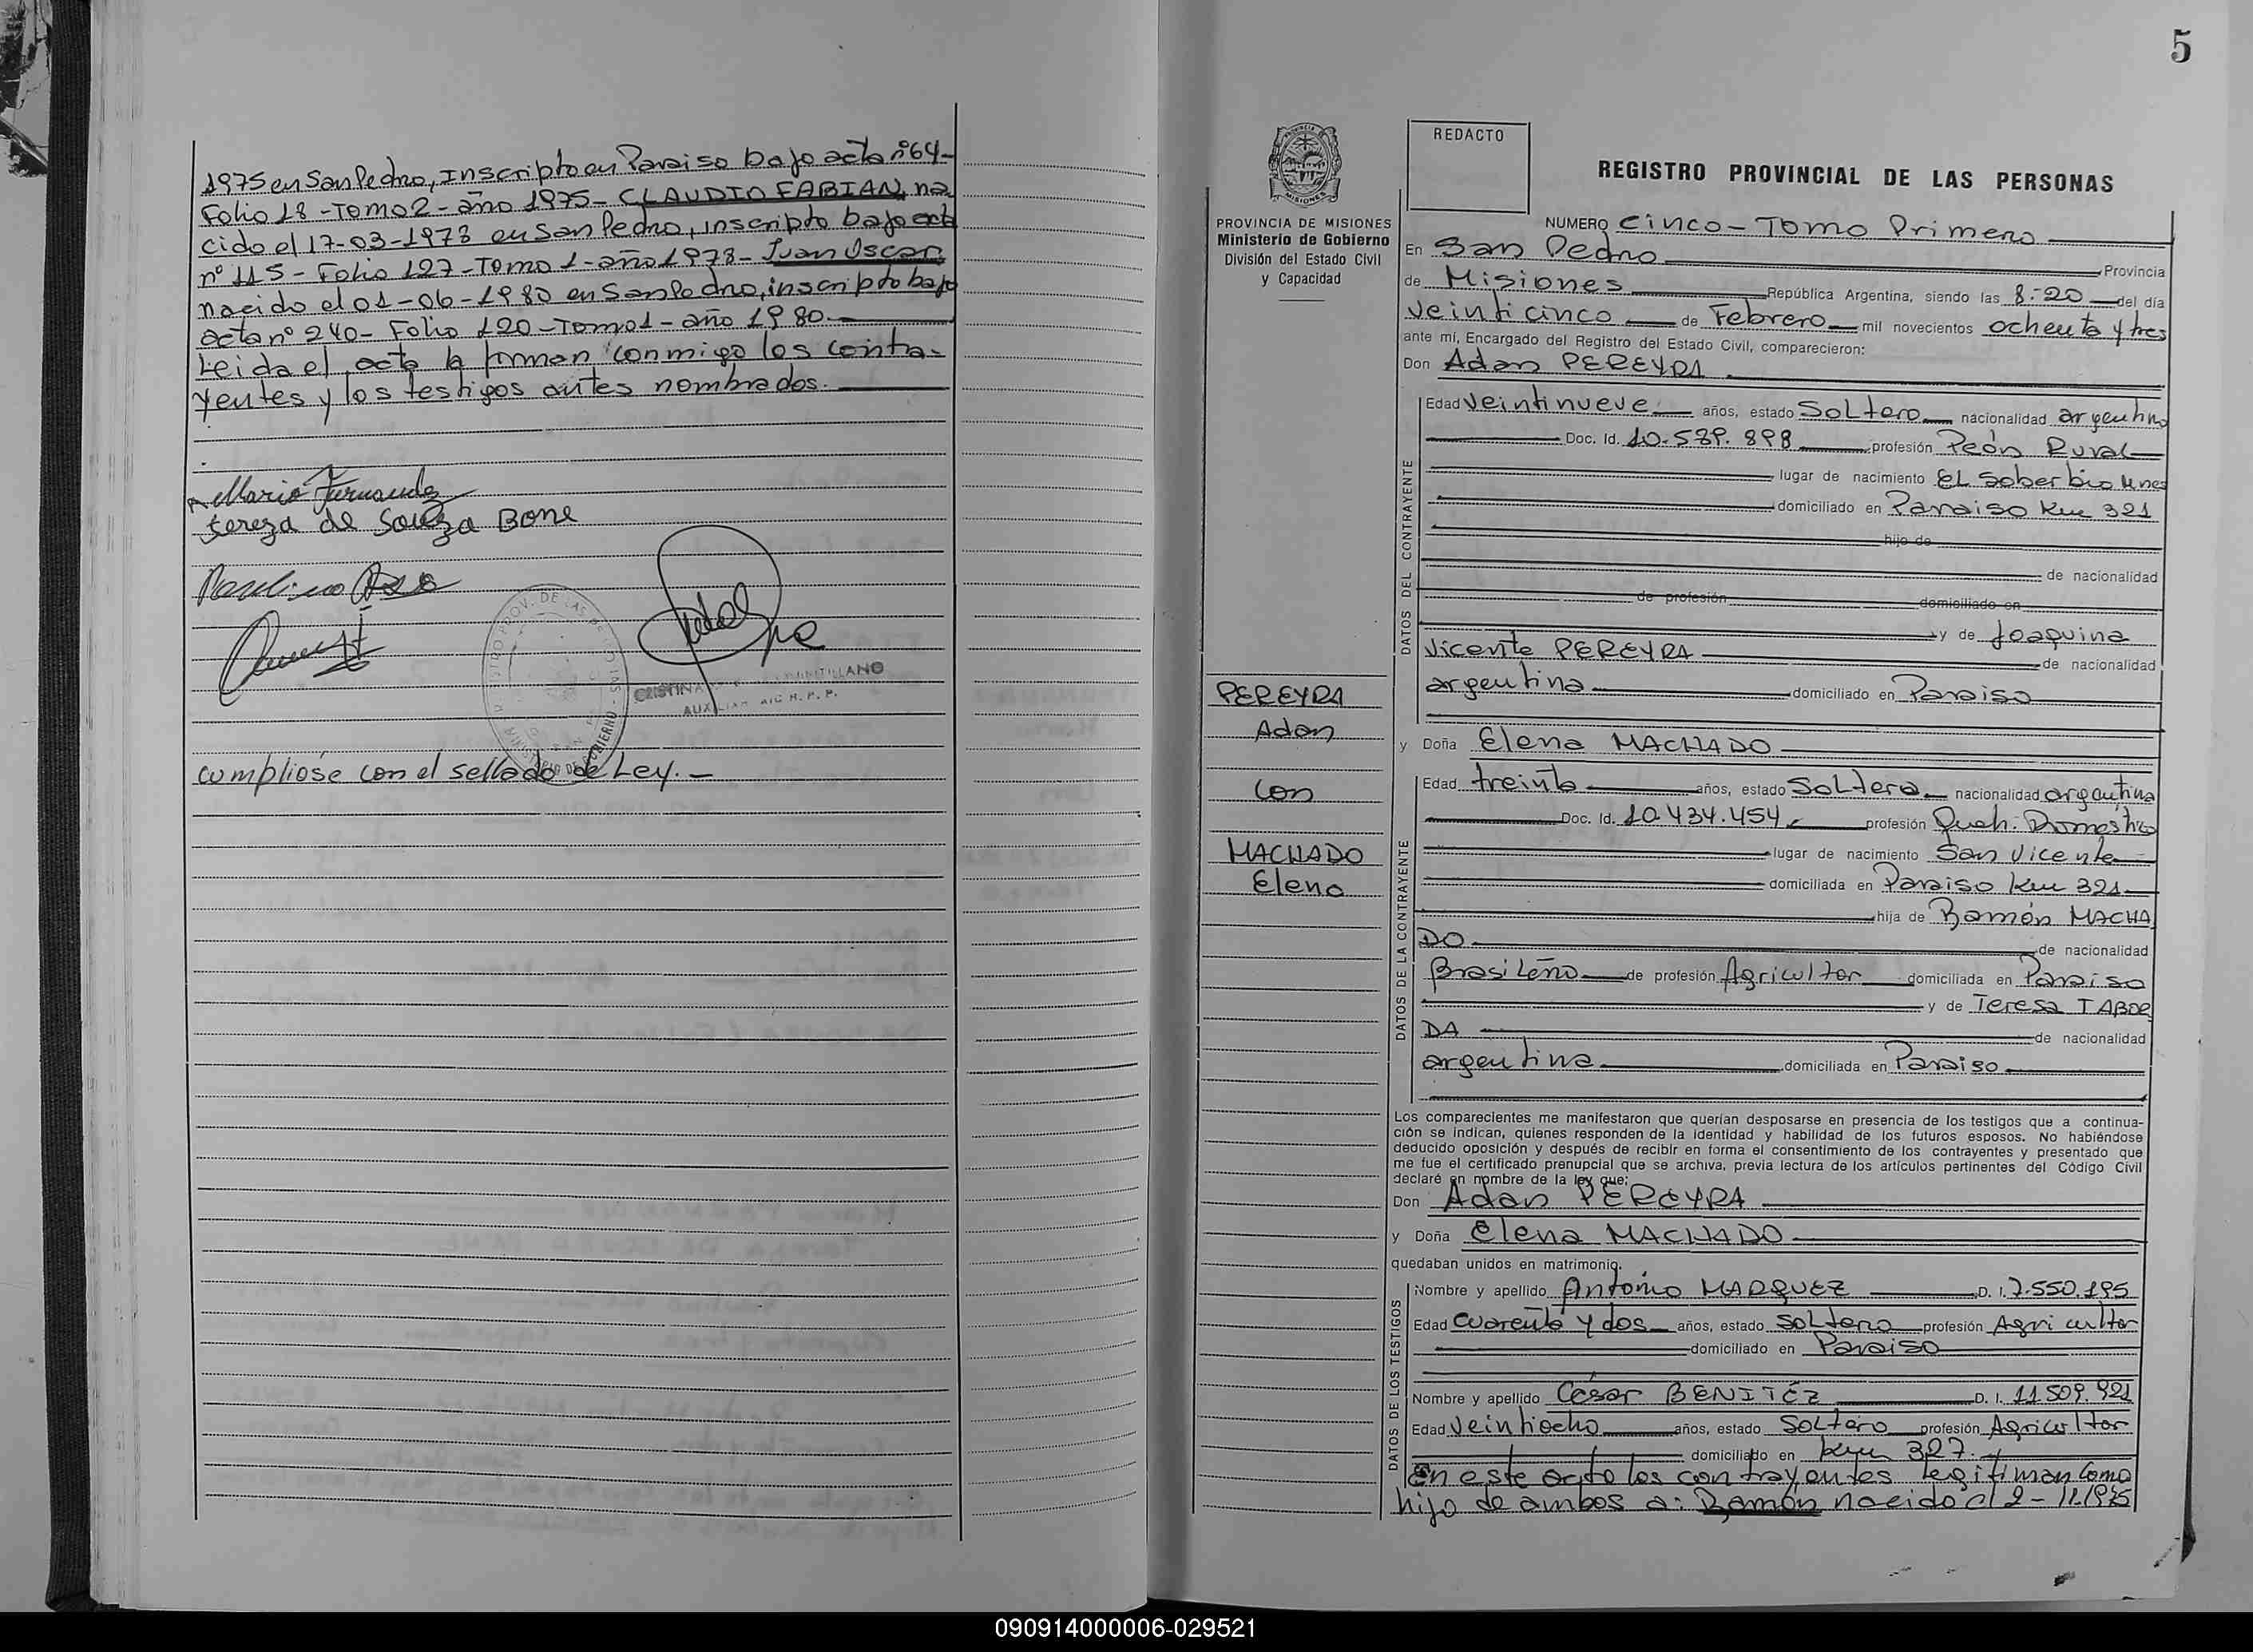 1975 en San Pedro, Inscripto en Paraiso bajo acta nº64-
Folio 18 - Tomo 2 - año 1975 - CLAUDIO FABIAN, na
cido el 17-03-1978 en San Pedro, inscripto bajo acta
nº 115 - Folio 127 - Tomo 1 - año 1978 - Juan Oscar,
nacido el 01-06-1980 en San Pedro, inscripto bajo
acta nº 240 - Folio 120 - Tomo 1 - año 1980.
Leida el acta la firman conmigo los contra-
yentes y los testigos antes nombrados.
Mario Fernandez
tereza de Souza Bone
CRISTINA
cumpliose con el sellado de Ley. -
5
REDACTO
REGISTRO PROVINCIAL DE LAS PERSONAS
PROVINCIA DE MISIONES
Ministerio de Gobierno
División del Estado Civil
y Capacidad
NUMERO Cinco - Tomo Primero
En San Pedro Provincia
de Misiones República Argentina, siendo las 8:20 del día
veinticinco de Febrero mil novecientos ochenta y tres
ante mí, Encargado del Registro del Estado Civil, comparecieron:
Don Adan PEREYRA
DATOS DEL CONTRAYENTE
Edad veintinueve años, estado Soltero nacionalidad argentino
Doc. Id. 10.539.898 profesión Peón Rural
lugar de nacimiento El Soberbio
domiciliado en Paraiso Km 321
hijo de
de nacionalidad
de profesión domiciliado en
y de Joaquina
Vicente PEREYRA de nacionalidad
argentina domiciliado en Paraiso
PEREYRA
Adan
con
MACHADO
Elena
y Doña Elena MACHADO
DATOS DE LA CONTRAYENTE
Edad treinta años, estado Soltera nacionalidad argentina
Doc. Id. 10.434.454 profesión Queh. Domestico
lugar de nacimiento San Vicente
domiciliada en Paraiso Km 321
hija de Ramón MACHA
DO de nacionalidad
Brasileño de profesión Agricultor domiciliada en Paraiso
y de Teresa TABOR
DA de nacionalidad
argentina domiciliada en Paraiso
Los comparecientes me manifestaron que querían desposarse en presencia de los testigos que a continua-
ción se indican, quienes responden de la identidad y habilidad de los futuros esposos. No habiéndose
deducido oposición y después de recibir en forma el consentimiento de los contrayentes y presentado que
me fue el certificado prenupcial que se archiva, previa lectura de los artículos pertinentes del Código Civil
declaré en nombre de la ley que:
Don Adan PEREYRA
y Doña Elena MACHADO
quedaban unidos en matrimonio.
DATOS DE LOS TESTIGOS
Nombre y apellido Antonio MARQUEZ D. I. 7.550.195
Edad Cuarenta y dos años, estado soltero profesión Agricultor
domiciliado en Paraiso
Nombre y apellido César BENITEZ D. I. 11.509.921
Edad Veintiocho años, estado Soltero profesión Agricultor
domiciliado en Km 327.
En este acto los contrayentes legitiman como
hijo de ambos a: Ramón nacido el 2-11-1975
090914000006-029521